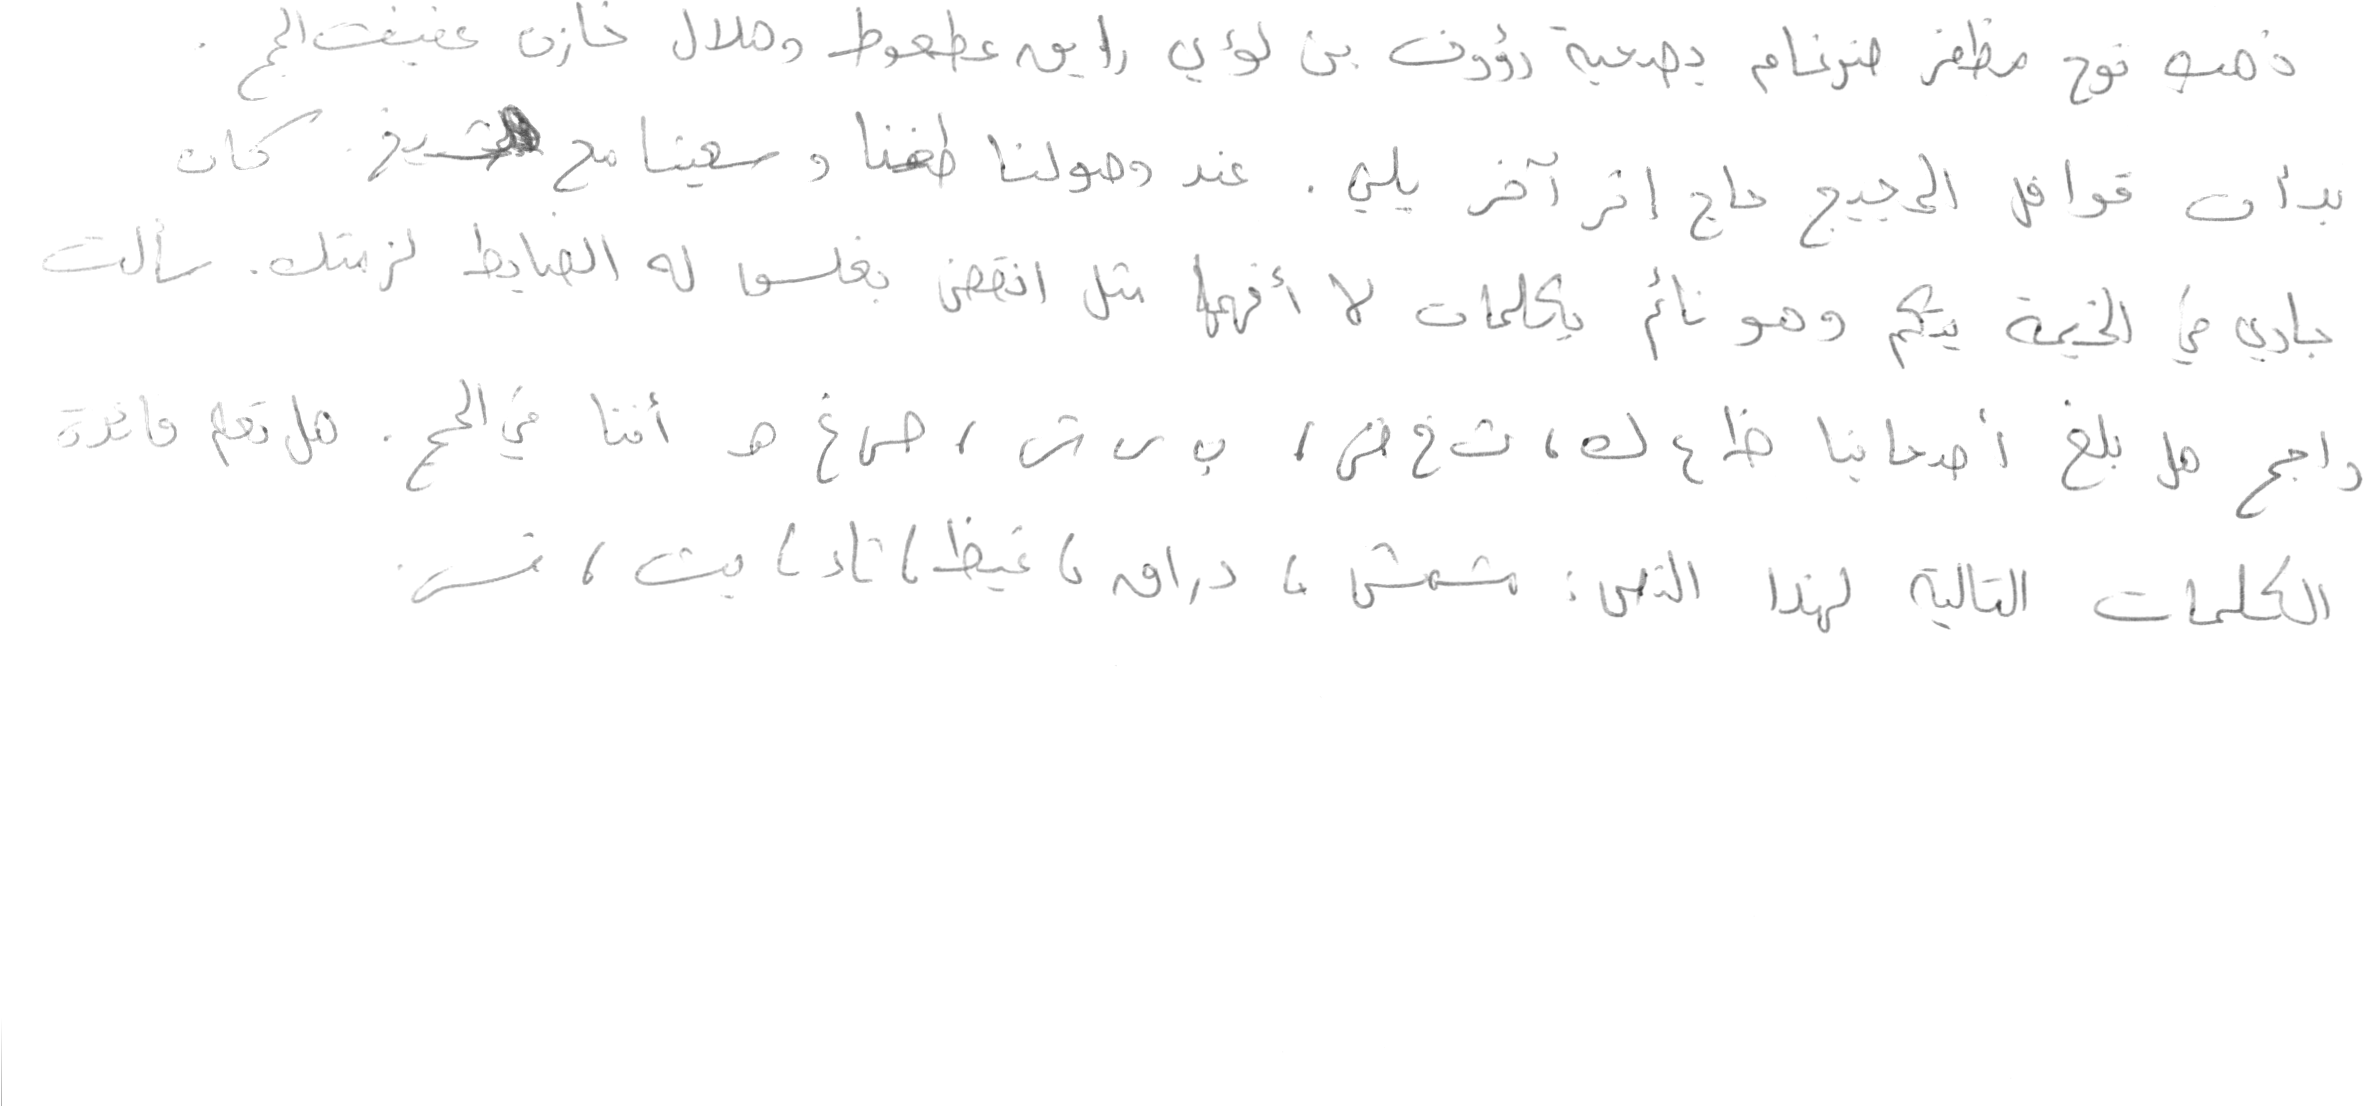 ذهب نوح مظفر ضرغام بصحبة رؤوف بن لؤي رايق عطعوط وهلال خازن عفيف الحج .
بدأت قوافل الحجيج حاج إثر آخر يلي . عند وصولنا طفنا و سعينا مع الشيخ . كان
جاري في الخيمة يتكلم وهو نائم بكلمات لا أفهمها مثل انقض بغلسوا له الضابط لزمتك . سألت
راجح هل بلغ أصحابنا ظ ع ك ، ث خ ض ، ب س ش ، ص غ هـ أننا في الحج . هل تعلم فائدة
الكلمات التالية لهذا النص : مشمش ، دراق ، غيظ ، ثار ، ميت ، نسر .